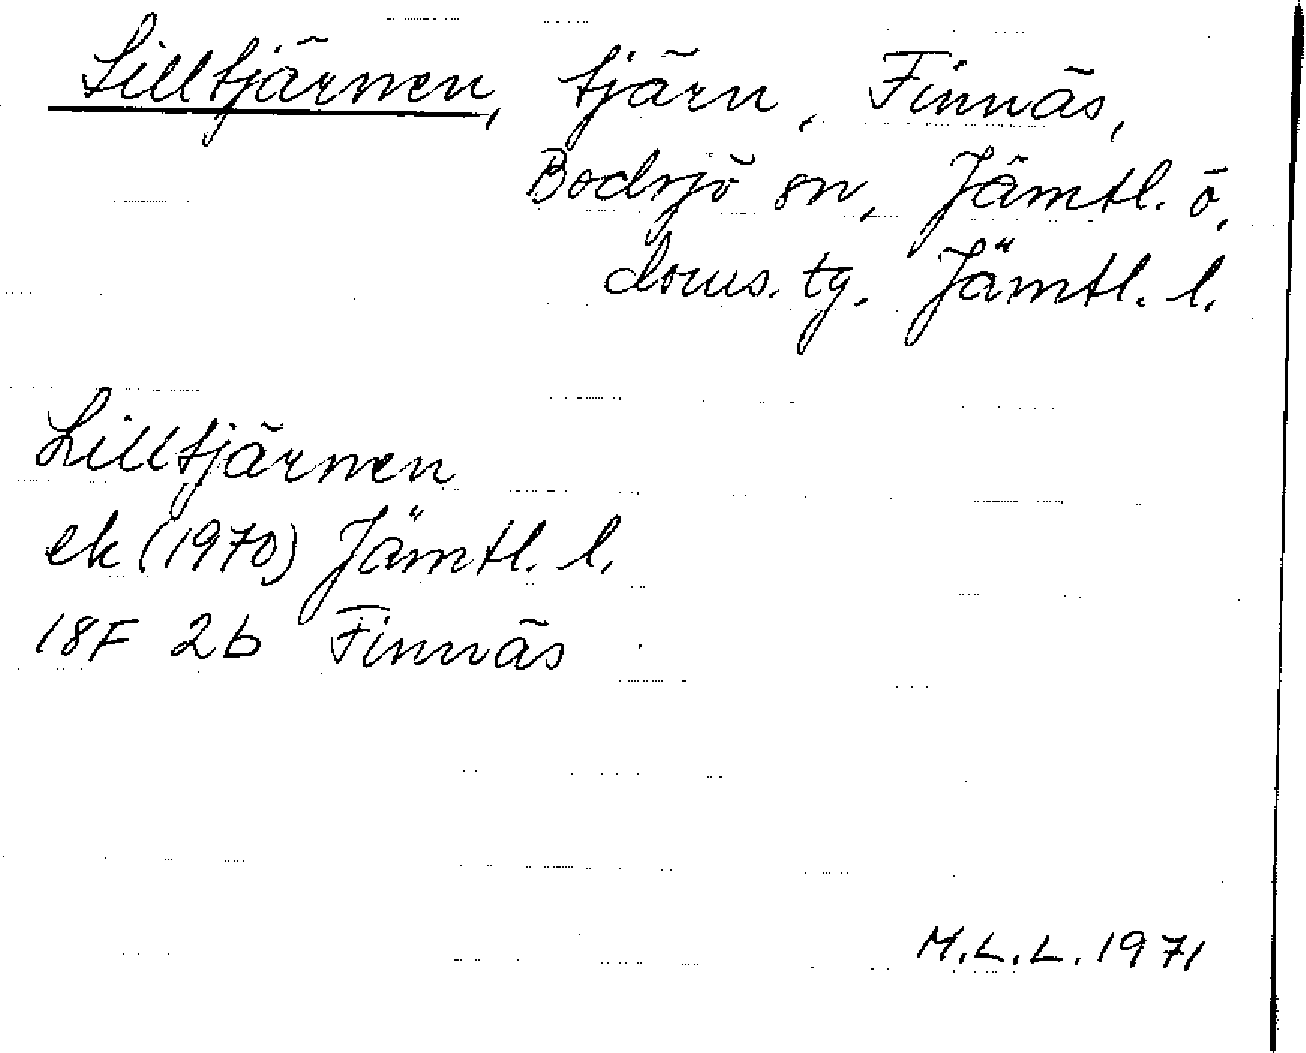 Lilltjärnen, tjärn, Finnäs,
Bodsjö sn, Jämtl. ö.
doms. tg. Jämtl. l.
Lilltjärnen
ek (1970) Jämtl. l.
18F 2b Finnäs
M.L.L. 1971